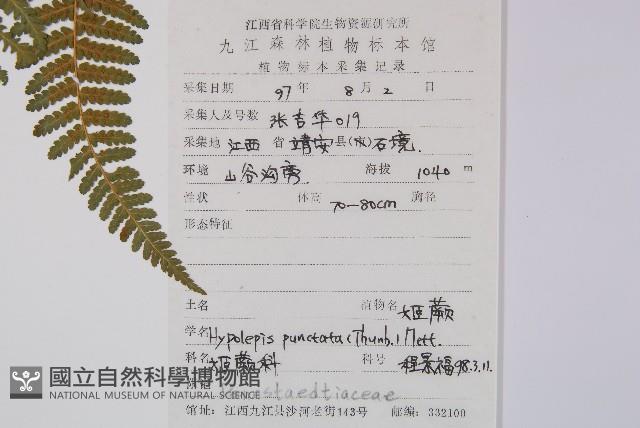 江西省科学院生物资源研究所
九江森林植物标本馆
植物标本采集记录
采集日期 97 年 8 月 2 日
采集人及号数 张吉华 019
采集地 江西 省 靖安 县(市) 石境.
环境 山谷沟旁 海拔 1040 m
性状 体高 70-80cm 胸径
形态特征
土名 植物名 姬蕨
学名 Hypolepis punctata (Thunb.) Mett.
科名 姬蕨科 科号 程景福 98.3.11.
staedtiaceae
馆址: 江西九江县沙河老街143号 邮编: 332100
國立自然科學博物館
NATIONAL MUSEUM OF NATURAL SCIENCE